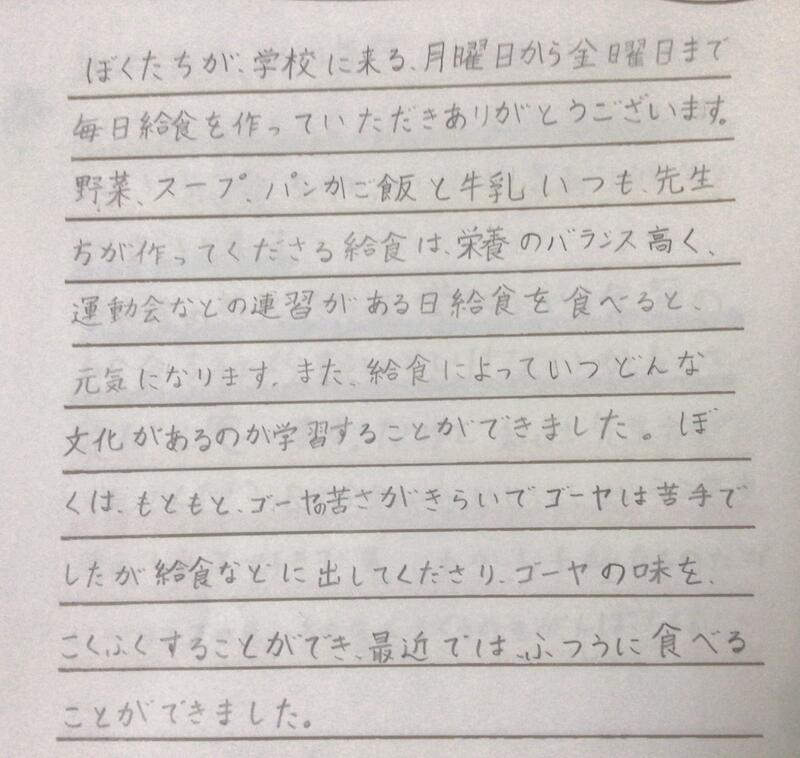 ぼくたちが、学校に来る、月曜日から金曜日まで
毎日給食を作っていただきありがとうございます。
野菜、スープ、パンかご飯と牛乳いつも、先生
ちが作ってくださる給食は、栄養のバランス高く、
運動会などの連習がある日給食を食べると、
元気になります。また、給食によっていつどんな
文化があるのか学習することができました。ぼ
くは、もともと、ゴーヤの苦さがきらいでゴーヤは苦手で
したが給食などに出してくださり、ゴーヤの味を、
こくふくすることができ、最近では、ふつうに食べる
ことができました。